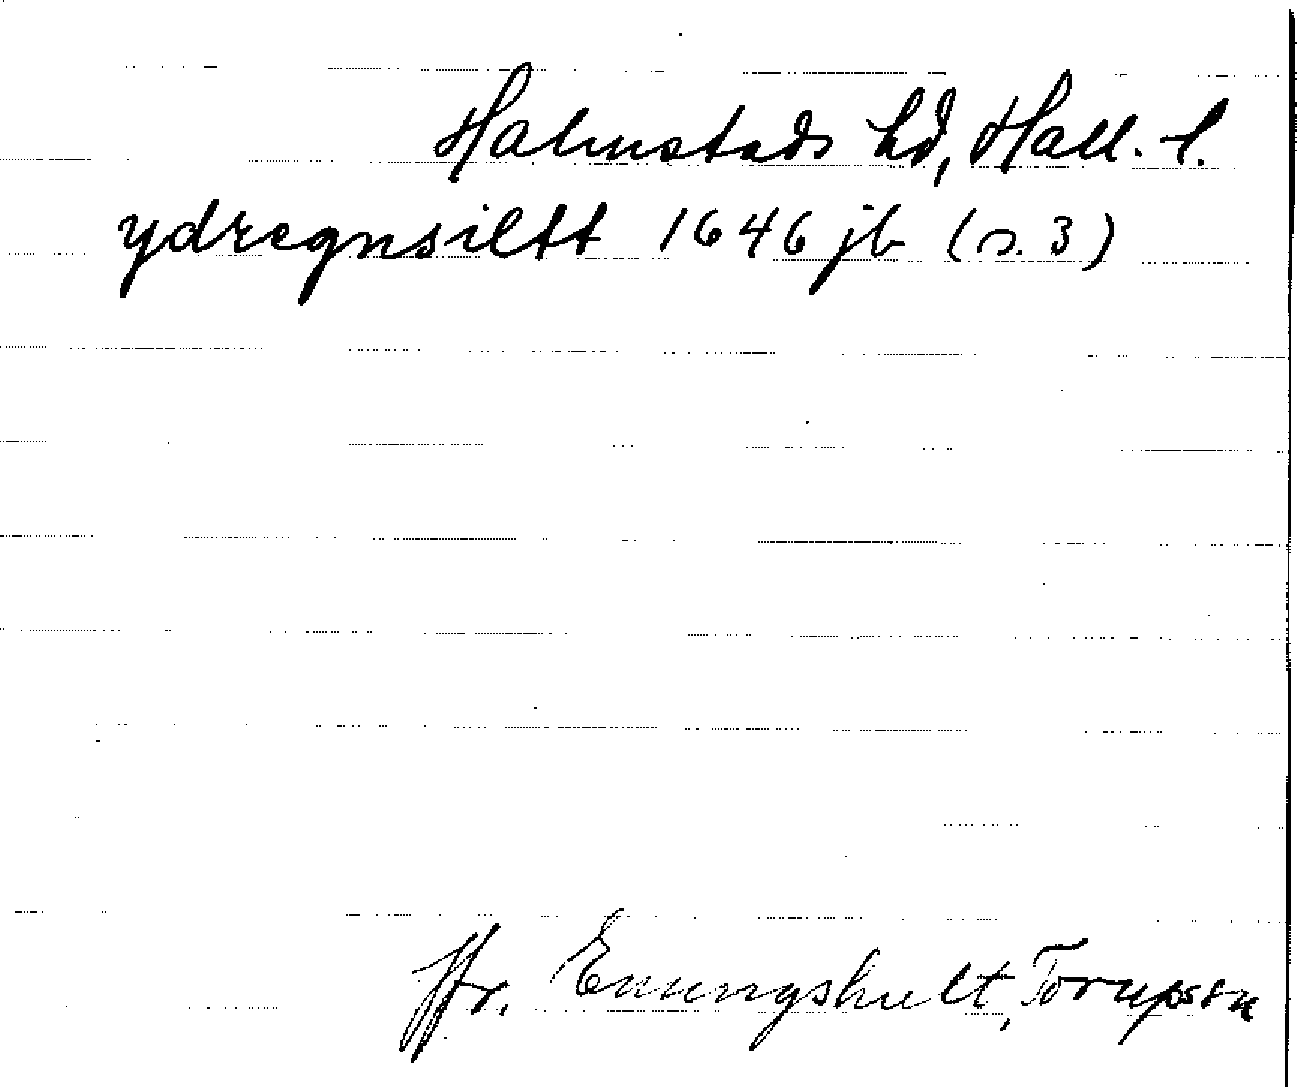 Halmstads hd, Hall. l.
ydregnsiltt 1646 jb (s. 3)
Jfr. Enungshult, Torupssn